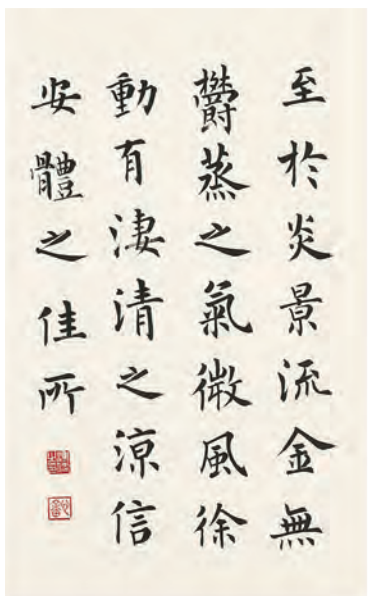 至於炎景流金無
欝蒸之氣微風徐
動有淒清之涼信
安體之佳所